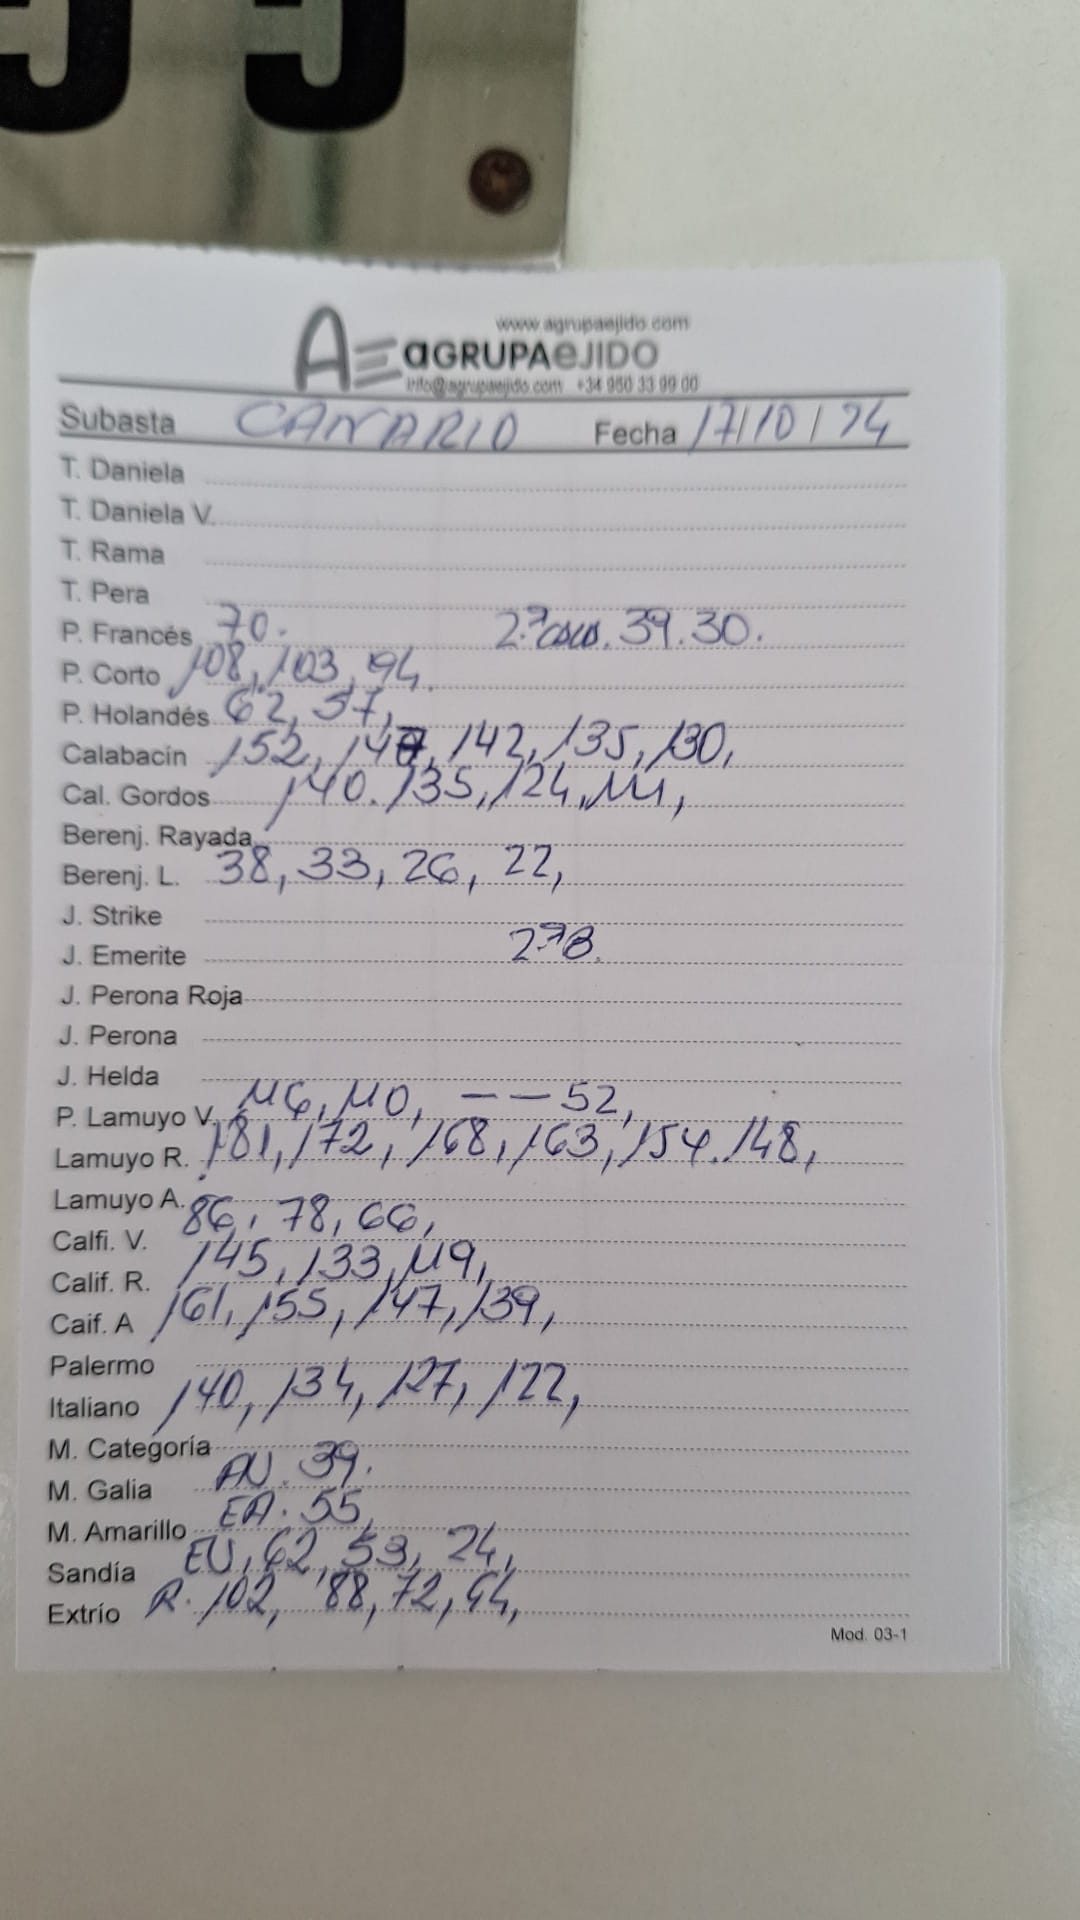 55
www.agrupaejido.com
AE AGRUPAEJIDO
info@agrupaejido.com +34 950 33 99 00
Subasta CANARIO Fecha 17/10/24
T. Daniela
T. Daniela V.
T. Rama
T. Pera
P. Francés 70. 2ª 39.30.
P. Corto 108, 103, 94.
P. Holandés 62, 57,
Calabacín 152, 147, 142, 135, 130,
Cal. Gordos 140. 135, 124, 111,
Berenj. Rayada
Berenj. L. 38, 33, 26, 22,
J. Strike
J. Emerite 278.
J. Perona Roja
J. Perona
J. Helda
P. Lamuyo V. 116, 110, — — 52,
Lamuyo R. 181, 172, 168, 163, 154. 148,
Lamuyo A.
Calfi. V. 86, 78, 66,
Calif. R. 145, 133, 119,
Caif. A 161, 155, 147, 139,
Palermo
Italiano 140, 134, 127, 122,
M. Categoría
M. Galia AN. 39.
M. Amarillo EA. 55,
Sandía EU, 62, 53, 24,
Extrío R. 102, 88, 72, 44,
Mod. 03-1